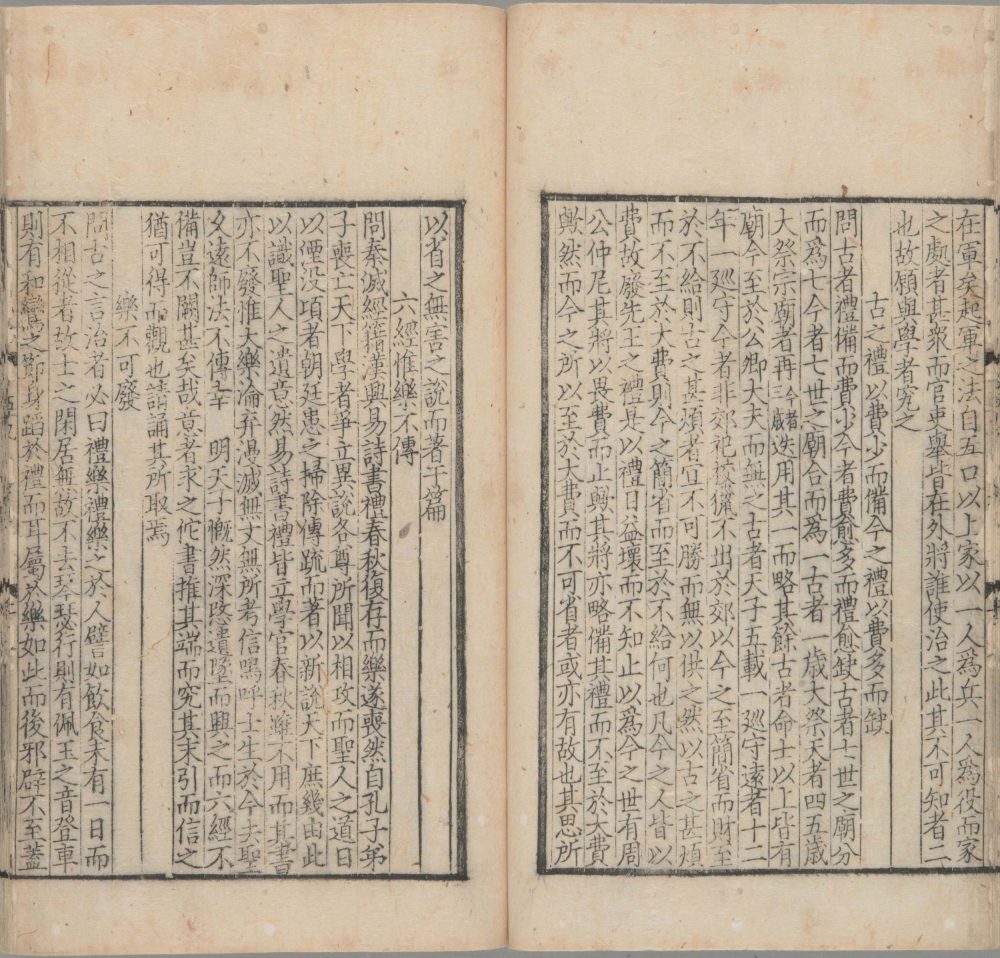 在軍矣起軍之法自五口以上家以一人爲兵一人爲役而家
之處者甚衆而官吏舉皆在外將誰使治之此其不可知者二
也故願與學者究之
古之禮以費少而備今之禮以費多而缺
問古者禮備而費少今者費愈多而禮愈缺古者七世之廟分
而爲七今者七世之廟合而爲一古者一歲大祭天者四五歲
大祭宗廟者再今者三歲迭用其一而略其餘古者命士以上皆有
廟今至於公卿大夫而無之古者天子五載一巡守遠者十二
年一巡守今者非郊祀校獵不出於郊以今之至簡省而財至
於不給則古之甚煩者宜不可勝而無以供之然以古之甚煩
而不至於大費則今之簡省而至於不給何也凡今之人皆以
費故廢先王之禮是以禮日益壞而不知止以爲今之世有周
公仲尼其將以畏費而止與其將亦略備其禮而不至於大費
歟然而今之所以至於大費而不可省者或亦有故也其思所
以省之無害之說而著于篇
六經惟樂不傳
問秦滅經籍漢興易詩書禮春秋復存而樂遂喪然自孔子弟
子喪亡天下學者爭立異說各尊所聞以相攻而聖人之道日
以煙没項者朝廷患之掃除傳疏而著以新說天下庶幾由此
以識聖人之遺意然易詩書禮皆立學官春秋雖不用而其書
亦不發惟大樂淪弃漫滅無文無所考信嗚呼士生於今去聖
久遠師法不傳幸 明天子慨然深愍遺墜而興之而六經不
備豈不闕甚矣哉意者求之佗書推其端而究其末引而信之
猶可得而觀也請誦其所取焉
樂不可發
問古之言治者必曰禮樂禮樂之於人譬如飲食未有一日而
不相從者故士之閑居無故不去琴瑟行則有佩玉之音登車
則有和鸞之節身蹈於禮而耳屬於樂如此而後邪辟不至蓋